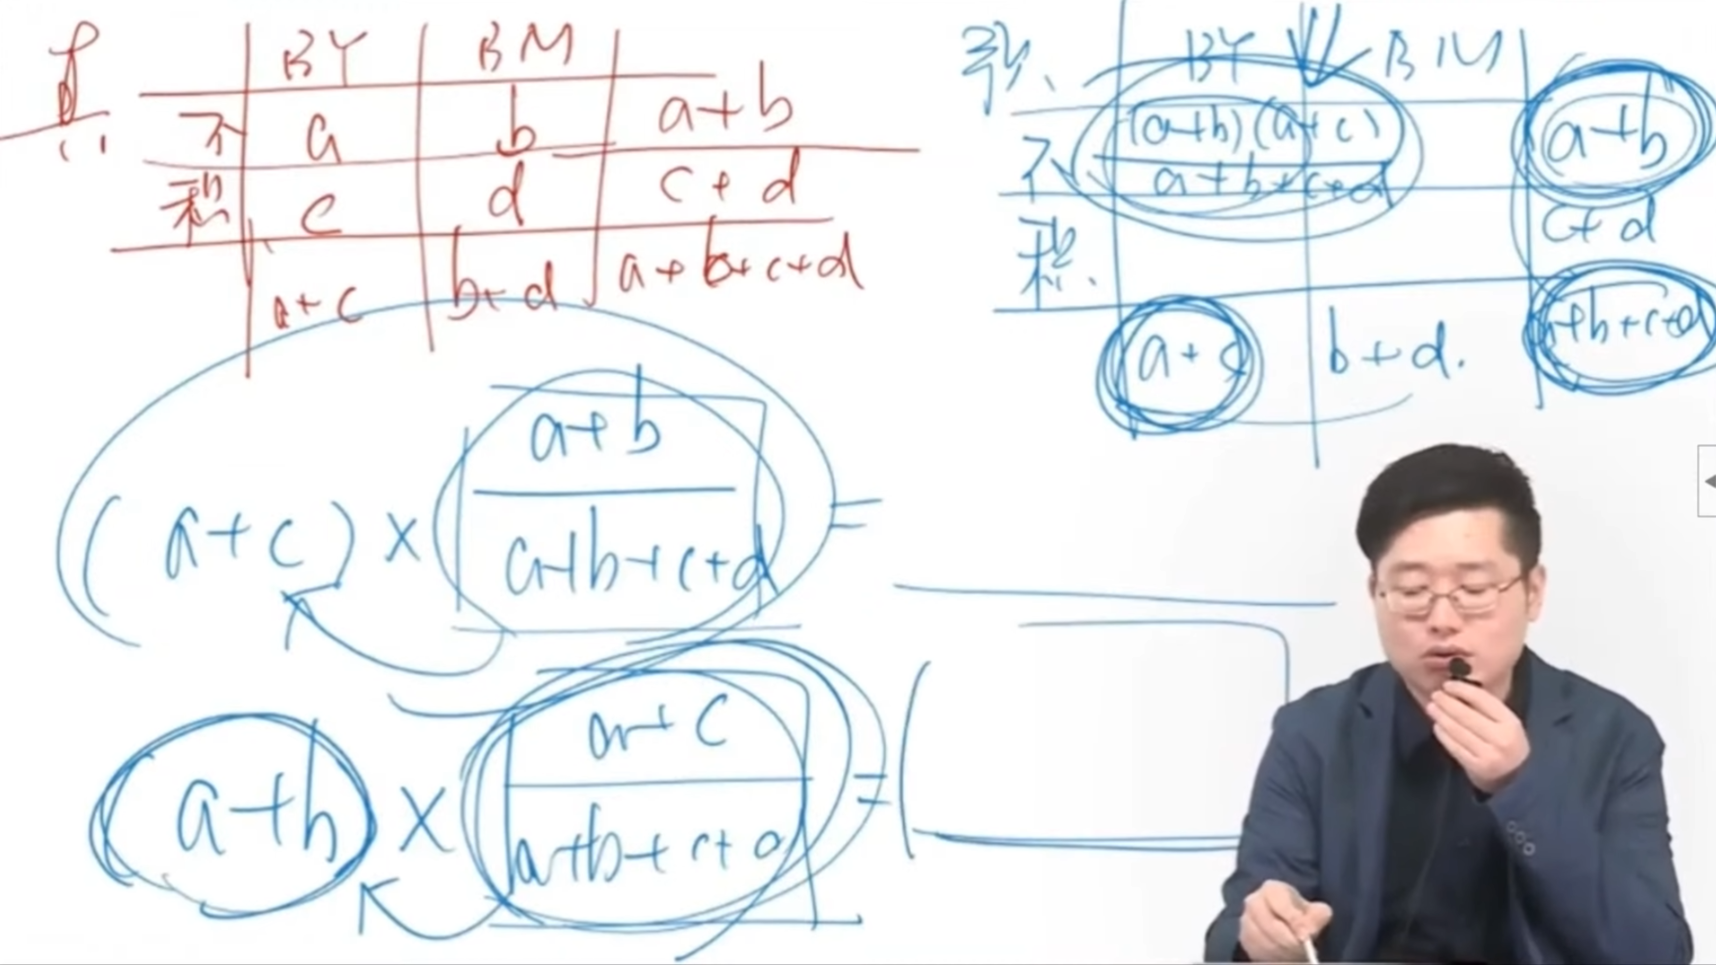 BY BM
不 a b a+b
积 c d c+d
a+c b+d a+b+c+d
BY BM
不 (a+b)(a+c) a+b
a+b+c+d
积 c+d
a+c b+d. a+b+c+d
(a+c) × a+b =
a+b+c+d
a+b × a+c =
a+b+c+d